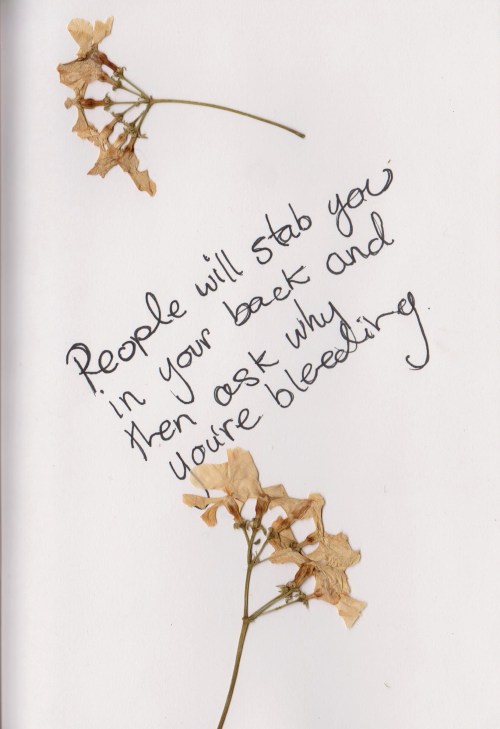 People will stab you
in your back and
then ask why
you're bleeding.